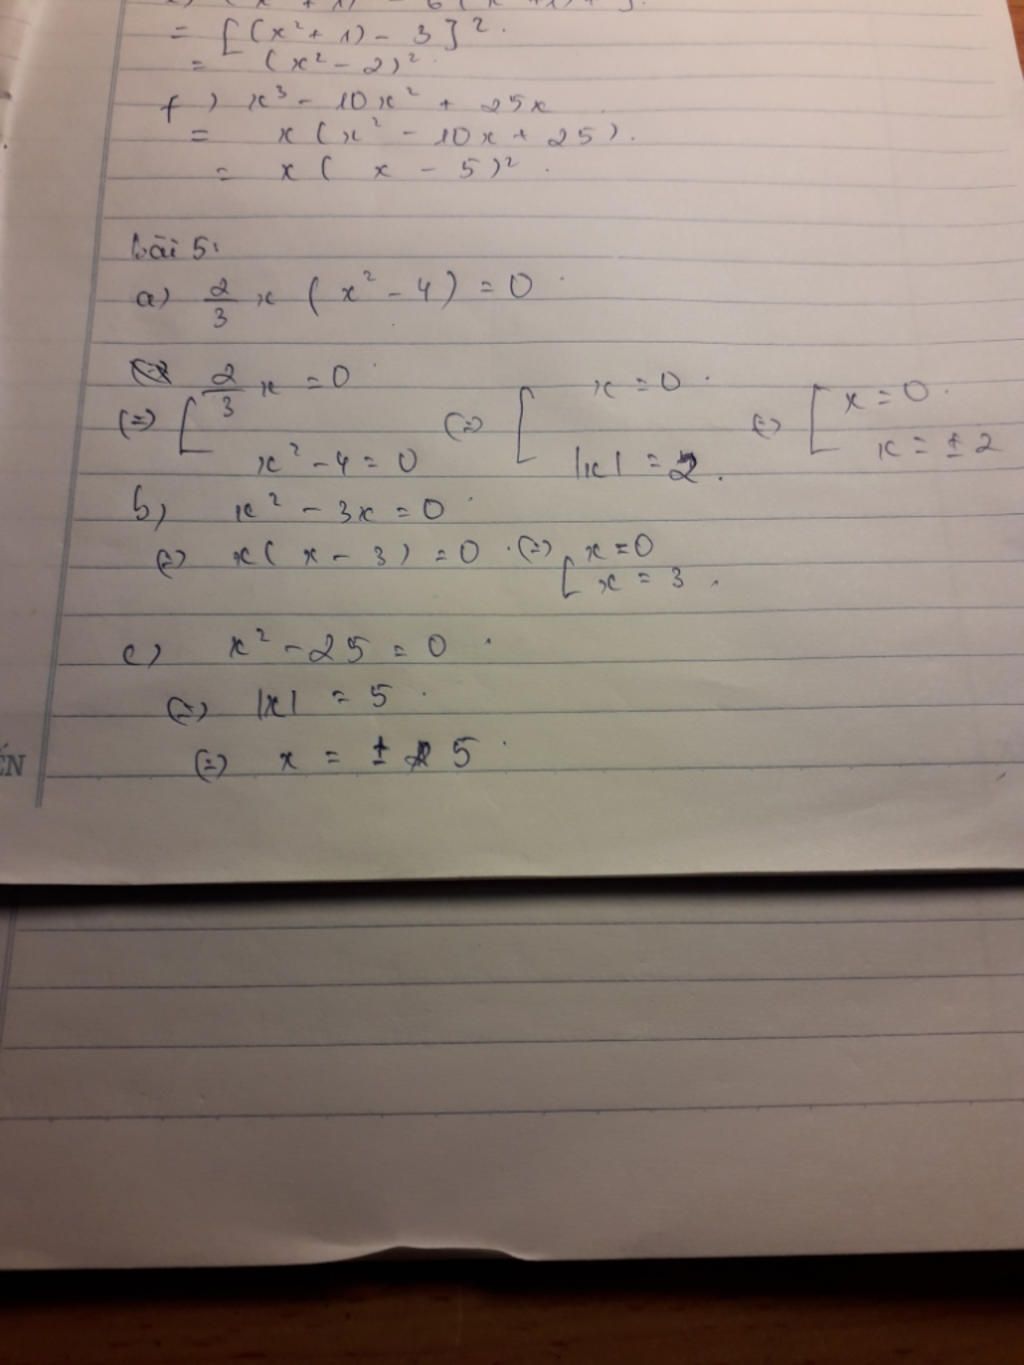 = [(x² + 1) - 3]².
= (x² - 2)².
f) x³ - 10x² + 25x
= x(x² - 10x + 25).
= x( x - 5)².
bài 5:
a) 2/3 x (x² - 4) = 0.
2/3 x = 0.
(=) [ (=) [ x = 0. (=) [ x = 0.
x² - 4 = 0 |x| = 2. x = ± 2
b) x² - 3x = 0.
(=) x( x - 3) = 0. (=) [ x = 0
x = 3.
c) x² - 25 = 0.
(=) |x| = 5.
(=) x = ± 5.
ẾN